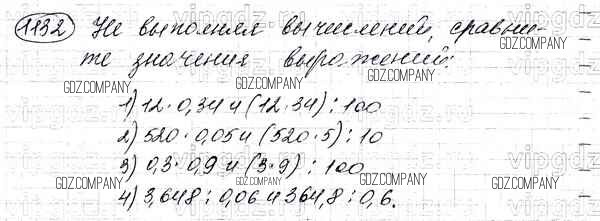 1132 Не выполняя вычислений, сравни-
те значения выражений:
1) 12 · 0,34 и (12 · 34) : 100
2) 520 · 0,05 и (520 · 5) : 10
3) 0,3 · 0,9 и (3 · 9) : 100
4) 3,648 : 0,06 и 364,8 : 0,6.
GDZ.COMPANY
GDZ.COMPANY
GDZ.COMPANY
GDZ.COMPANY
GDZ.COMPANY
GDZ.COMPANY
GDZ.COMPANY
GDZ.COMPANY